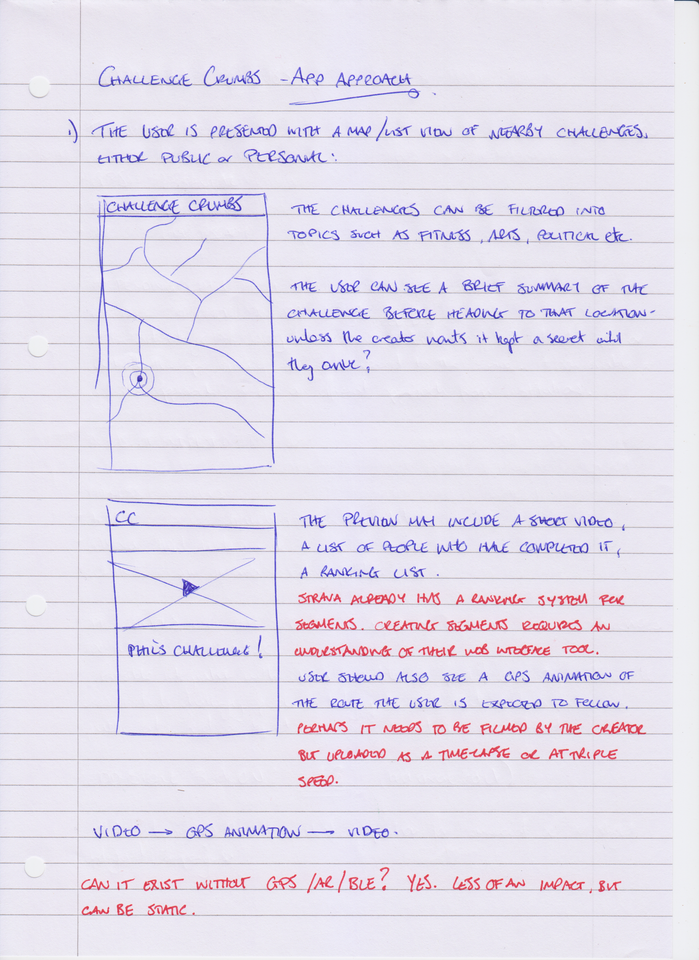 CHALLENGE CRUMBS - APP APPROACH.
1) THE USER IS PRESENTED WITH A MAP/LIST VIEW OF NEARBY CHALLENGES,
EITHER PUBLIC or PERSONAL:
CHALLENGE CRUMBS
THE CHALLENGES CAN BE FILTERED INTO
TOPICS SUCH AS FITNESS, ARTS, POLITICAL etc.
THE USER CAN SEE A BRIEF SUMMARY OF THE
CHALLENGE BEFORE HEADING TO THAT LOCATION-
unless the creator wants it kept a secret until
they arrive?
CC
PHIL'S CHALLENGE!
THE PREVIEW MAY INCLUDE A SHORT VIDEO,
A LIST OF PEOPLE WHO HAVE COMPLETED IT,
A RANKING LIST.
STRAVA ALREADY HAS A RANKING SYSTEM FOR
SEGMENTS. CREATING SEGMENTS REQUIRES AN
UNDERSTANDING OF THEIR WEB INTERFACE TOOL.
USER SHOULD ALSO SEE A GPS ANIMATION OF
THE ROUTE THE USER IS EXPECTED TO FOLLOW.
PERHAPS IT NEEDS TO BE FILMED BY THE CREATOR
BUT UPLOADED AS A TIME-LAPSE OR AT TRIPLE
SPEED.
VIDEO → GPS ANIMATION → VIDEO.
CAN IT EXIST WITHOUT GPS/AR/BLE? YES. LESS OF AN IMPACT, BUT
CAN BE STATIC.